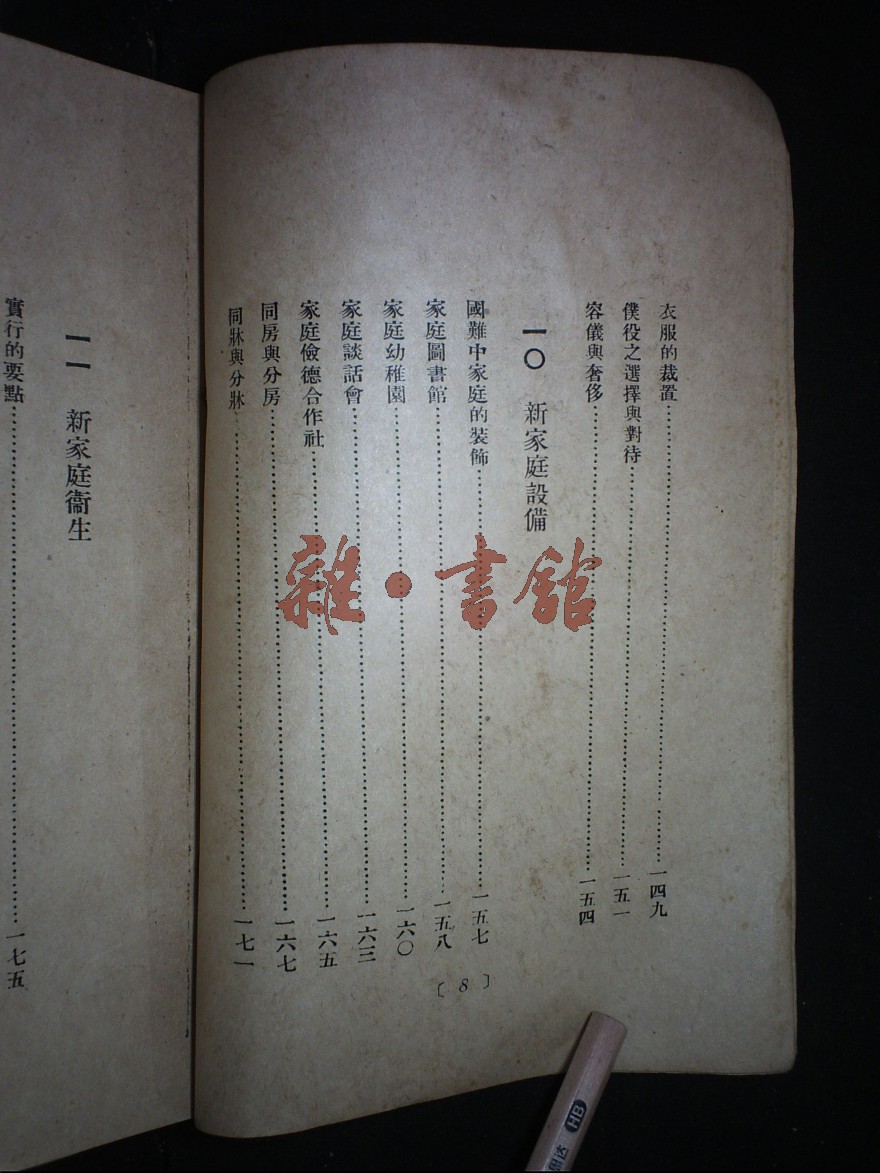 衣服的裁置……一四九
僕役之選擇與對待……一五一
容儀與奢侈……一五四
一〇 新家庭設備
國難中家庭的裝飾……一五七
家庭圖書館……一五八
家庭幼稚園……一六〇
家庭談話會……一六三
家庭儉德合作社……一六五
同房與分房……一六七
同牀與分牀……一七一
〔8〕
一一 新家庭衞生
實行的要點……一七五
雜·書館
HB